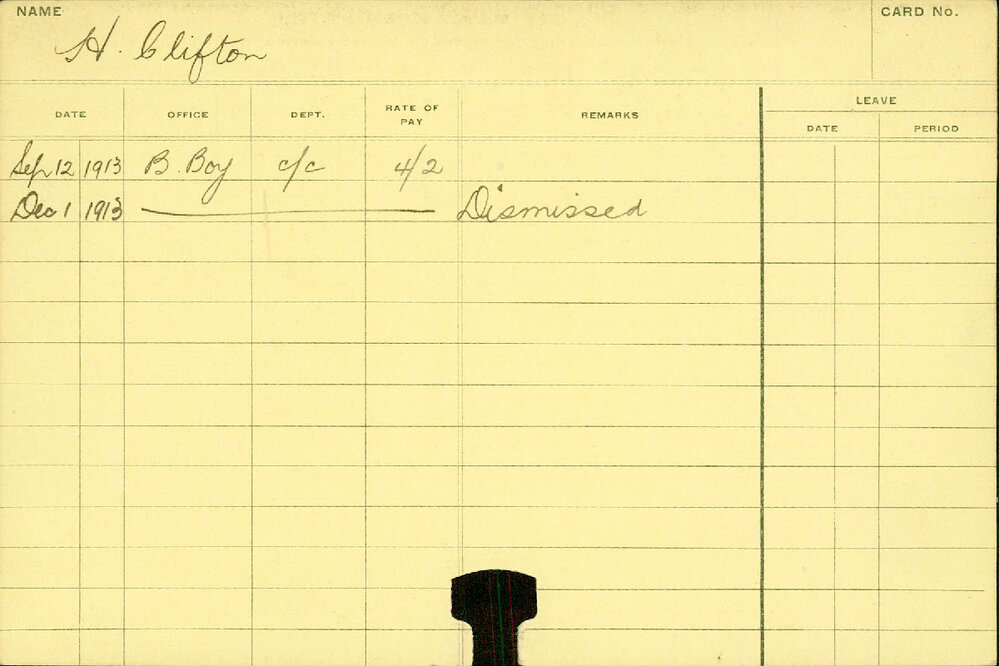 NAME
CARD No.
H. Clifton
DATE OFFICE DEPT. RATE OF PAY REMARKS LEAVE
DATE PERIOD
Sep 12 1913 B. Boy c/c 4/2
Dec 1 1913 Dismissed